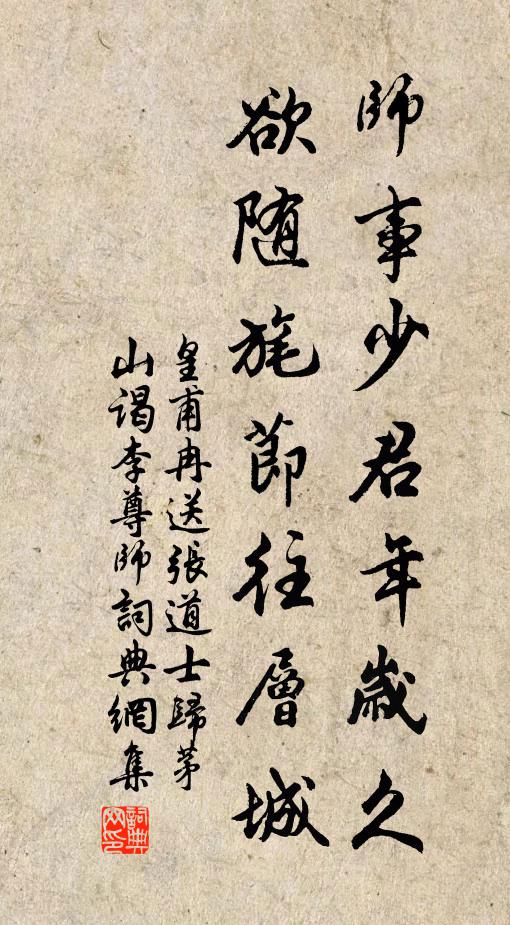 師事少君年歲久
欲随旄節往層城
皇甫冉送張道士歸茅
山謁李尊師詞典網集
詞典
网印